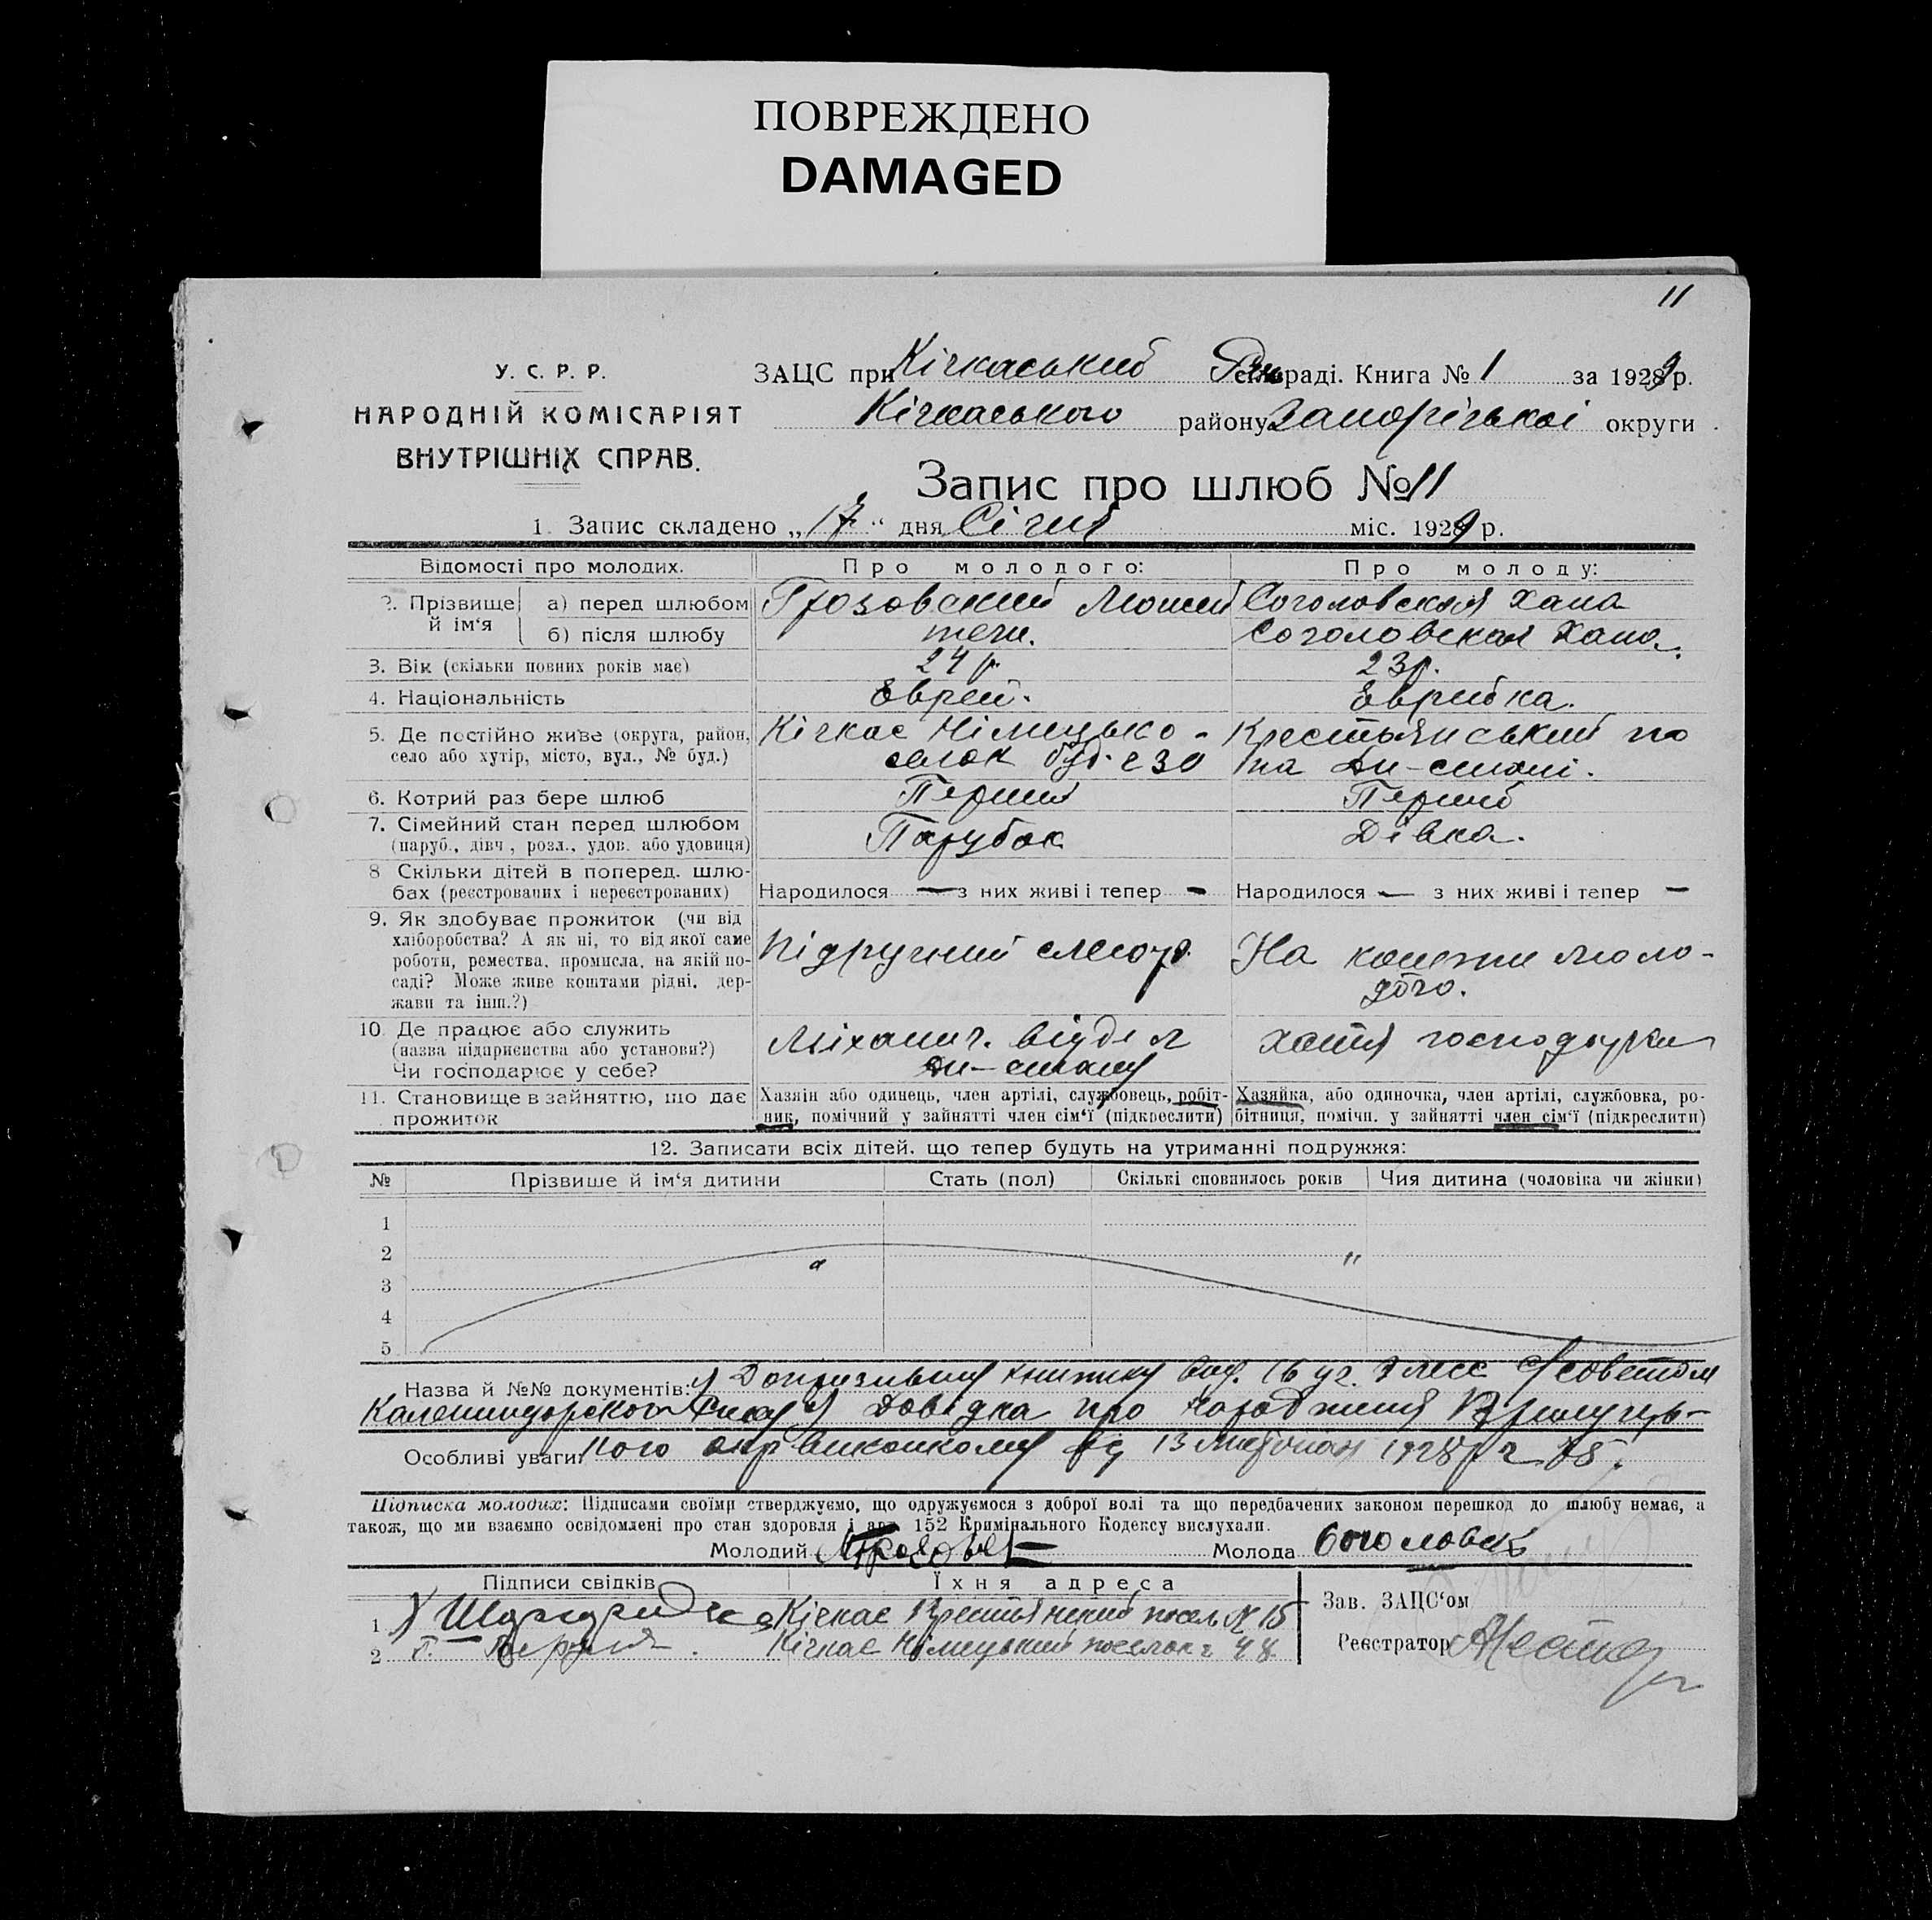 ПОВРЕЖДЕНО
DAMAGED
11
У. С. Р. Р.
НАРОДНІЙ КОМІСАРІЯТ
ВНУТРІШНІХ СПРАВ.
ЗАЦС при Кічкаський Рай сільраді. Книга № 1 за 1929 р.
Кічкаського району Запорізької округи
Запис про шлюб № 11
1. Запис складено „17“ дня Січня міс. 1929 р.
Відомості про молодих. Про молодого: Про молоду:
2. Прізвище й ім‘я а) перед шлюбом Грозовский Мошей Соголовская Хана
б) після шлюбу теж. Соголовская Хана.
3. Вік (скільки повних років має) 24 р. 23 р.
4. Національність Еврей. Еврейка.
5. Де постійно живе (округа, район, Кічкас Німецько- Крестьянський по
село або хутір, місто, вул., № буд.) селок буд. 230 на Дн-стані.
6. Котрий раз бере шлюб Перший Перший
7. Сімейний стан перед шлюбом Парубок Дівка.
(паруб., дівч., розл., удов. або удовиця)
8 Скільки дітей в поперед. шлю-
бах (реєстрованих і нереєстрованих) Народилося — з них живі і тепер - Народилося — з них живі і тепер —
9. Як здобуває прожиток (чи від
хліборобства? А як ні, то від якої саме
роботи, ремества, промисла, на якій по- Підручний слюсар. На кошти моло-
саді? Може живе коштами рідні, дер- дого.
жави та інш.?)
10. Де працює або служить Міханич. відділ хатня господарка
(назва підприємства або установи?) Дн-стану
Чи господарює у себе?
11. Становище в зайняттю, що дає Хазяїн або одинець, член артілі, службовець, робіт- Хазяйка, або одиночка, член артілі, службовка, ро-
прожиток ник, помічний у зайнятті член сім‘ї (підкреслити) бітниця, помічн. у зайнятті член сім‘ї (підкреслити)
12. Записати всіх дітей, що тепер будуть на утриманні подружжя:
№ Прізвише й ім‘я дитини Стать (пол) Скількі сповнилось років Чия дитина (чоловіка чи жінки)
1
2
3
4
5
Назва й №№ документів: 1) Допризывну книжку
Довідка про народження
Особливі уваги: ного окрвиконкому від 13 1928 р.
Підписка молодих: Підписами своїми стверджуємо, що одружуємося з доброї волі та що передбачених законом перешкод до шлюбу немає, а
також, що ми взаємно освідомлені про стан здоровля і арт. 152 Кримінального Кодексу вислухали.
Молодий Молода
Підписи свідків Їхня адреса
1 Кічкас Крестьянский посел № 15 Зав. ЗАЦС‘ом
2 Кічкас Німецький поселок 48 Реєстратор